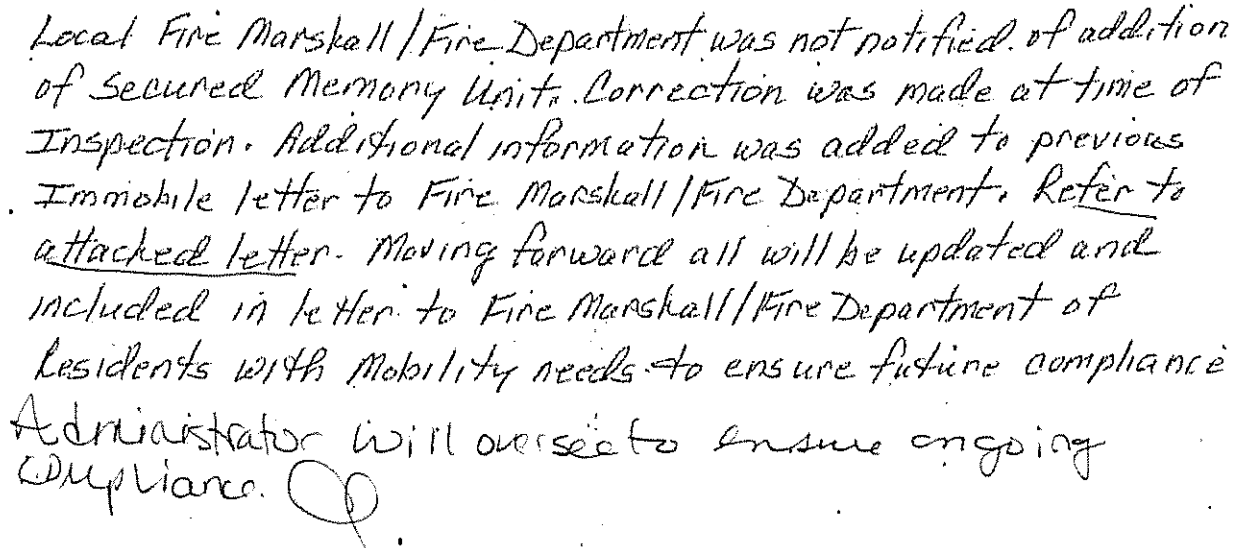 Local Fire Marshall/Fire Department was not notified. of addition
of Secured Memory Unit. Correction was made at time of
Inspection. Additional information was added to previous
Immobile letter to Fire Marshall/Fire Department. Refer to
attached letter. Moving forward all will be updated and
included in letter to Fire Marshall/Fire Department of
Residents with Mobility needs to ensure future compliance
Administrator will oversee to ensure ongoing
compliance.